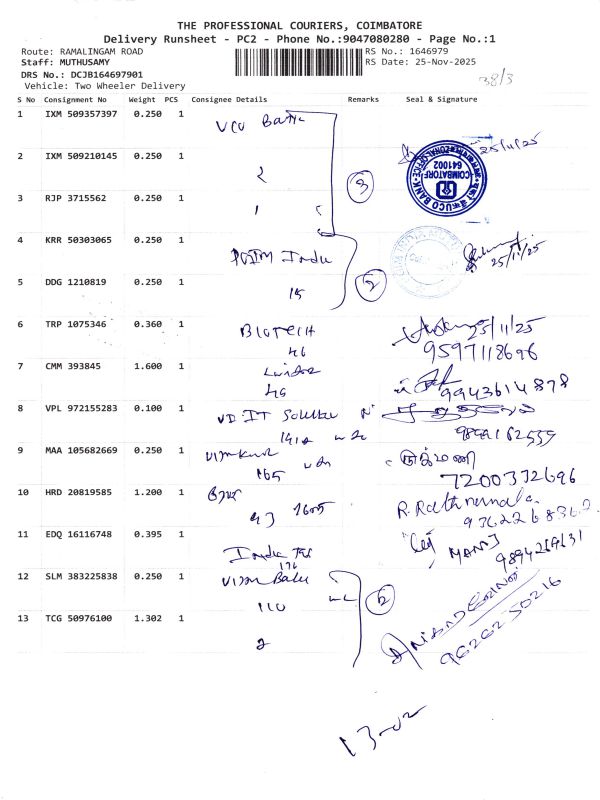 THE PROFESSIONAL COURIERS, COIMBATORE
Delivery Runsheet - PC2 - Phone No.:9047080280 - Page No.:1
Route: RAMALINGAM ROAD
RS No.: 1646979
Staff: MUTHUSAMY
RS Date: 25-Nov-2025
DRS No.: DCJB164697901
38/3
Vehicle: Two Wheeler Delivery
S No Consignment No Weight PCS Consignee Details Remarks Seal & Signature
1 IXM 509357397 0.250 1 UCO Bank
25/11/25
2 IXM 509210145 0.250 1 2
COIMBATORE 641002
3
3 RJP 3715562 0.250 1 1
4 KRR 50303065 0.250 1 India
25/11/25
5 DDG 1210819 0.250 1 15
2
6 TRP 1075346 0.360 1 Biotech 25/11/25
46 9597118696
7 CMM 393845 1.600 1
46 9943614878
8 VPL 972155283 0.100 1 VD IT
9 MAA 105682669 0.250 1 ருக்மணி
165 7200332696
10 HRD 20819585 1.200 1 R. Rathnamala
43 1605
11 EDQ 16116748 0.395 1 MANOJ
India 9894269631
176
12 SLM 383225838 0.250 1
110 2
13 TCG 50976100 1.302 1
2
9626250216
13-02